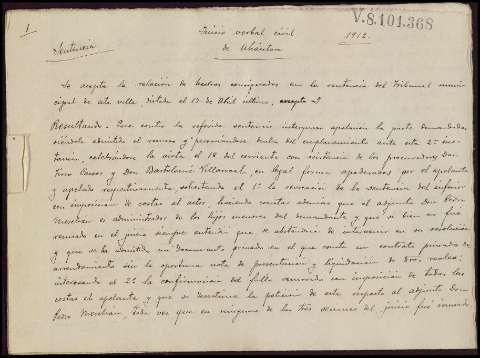 1
V.8.101.368
Juicio verbal civil
de Uhárten
1912.
Sentencia
Se acepta la relación de hechos consignados en la sentencia del Tribunal muni-
cipal de esta villa, dictada el 13 de Abril último, excepto el
Resultando. Que contra la referida sentencia interpuso apelación la parte demandada,
siéndole admitido el recurso y personándose dentro del emplazamiento ante esta 2ª ins-
tancia, celebrándose la vista el 18 del corriente con asistencia de los procuradores Don
y Don Bartolomé en legal forma apoderados por el apelante
y apelado respectivamente solicitando el 1º la revocación de la sentencia del inferior
con imposición de costas al actor, haciendo constar además que el adjunto Don Pedro
es administrador de los hijos menores del demandante y que si bien no fué
recusado en el juicio siempre entendió que se abstendría de intervenir en su resolución
y que se ha admitido un documento privado en el que consta un contrato privado de
arrendamiento sin la oportuna nota de presentación y liquidación de dros. reales;
interesando el 2º la confirmación del fallo recurrido con imposición de todas las
costas al apelante y que se desestime la petición de este respecto al adjunto Don
Pedro toda vez que en ninguna de las tres sesiones del juicio fué